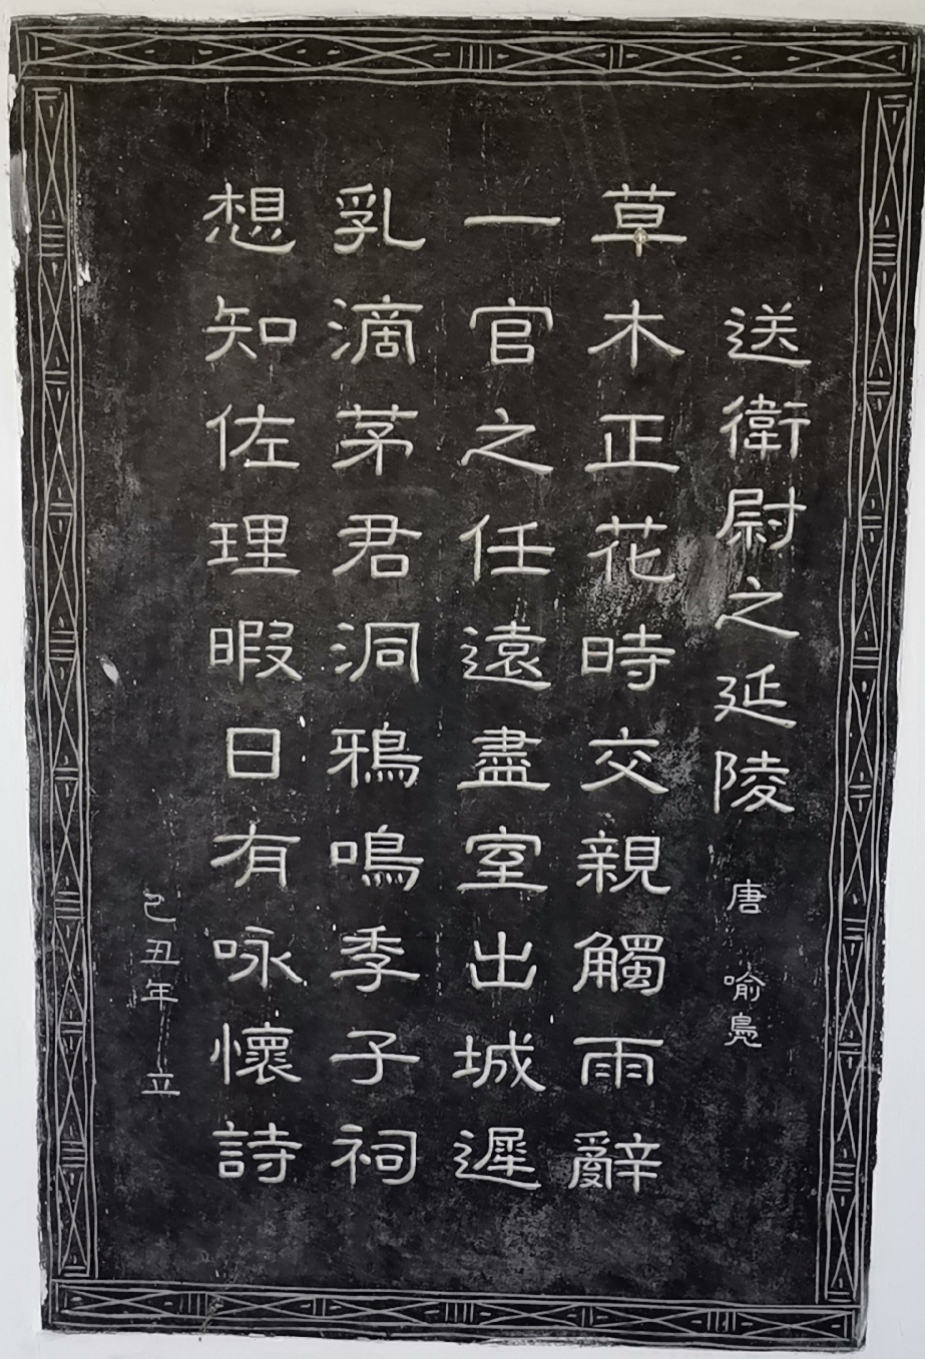 送衛尉之延陵 唐 喻鳧
草木正花時交親觸雨辭
一官之任遠盡室出城遲
乳滴茅君洞鴉鳴季子祠
想知佐理暇日有咏懷詩
己丑年立